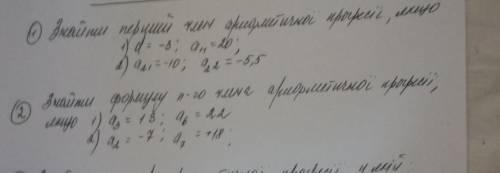 ① Знайти перший член арифметичної прогресії, якщо
1) d = -3; a₁₁ = 20;
2) a₂₁ = -10; a₂₂ = -5,5
② Знайти формулу n-го члена арифметичної прогресії,
якщо 1) a₃ = 13; a₆ = 22
2) a₂ = -7; a₇ = +18;